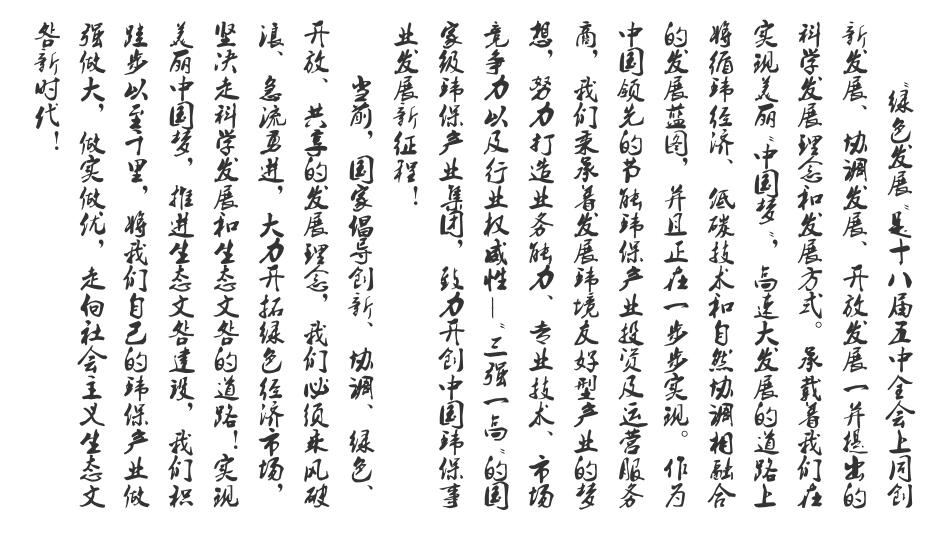 “绿色发展”是十八届五中全会上同创
新发展、协调发展、开放发展一并提出的
科学发展理念和发展方式。承载着我们在
实现美丽“中国梦”，高速大发展的道路上
将循环经济、低碳技术和自然协调相融合
的发展蓝图，并且正在一步步实现。作为
中国领先的节能环保产业投资及运营服务
商，我们秉承着发展环境友好型产业的梦
想，努力打造业务能力、专业技术、市场
竞争力以及行业权威性—“三强一高”的国
家级环保产业集团，致力开创中国环保事
业发展新征程！
当前，国家倡导创新、协调、绿色、
开放、共享的发展理念，我们必须乘风破
浪、急流勇进，大力开拓绿色经济市场，
坚决走科学发展和生态文明的道路！实现
美丽中国梦，推进生态文明建设，我们积
跬步以至千里，将我们自己的环保产业做
强做大，做实做优，走向社会主义生态文
明新时代！